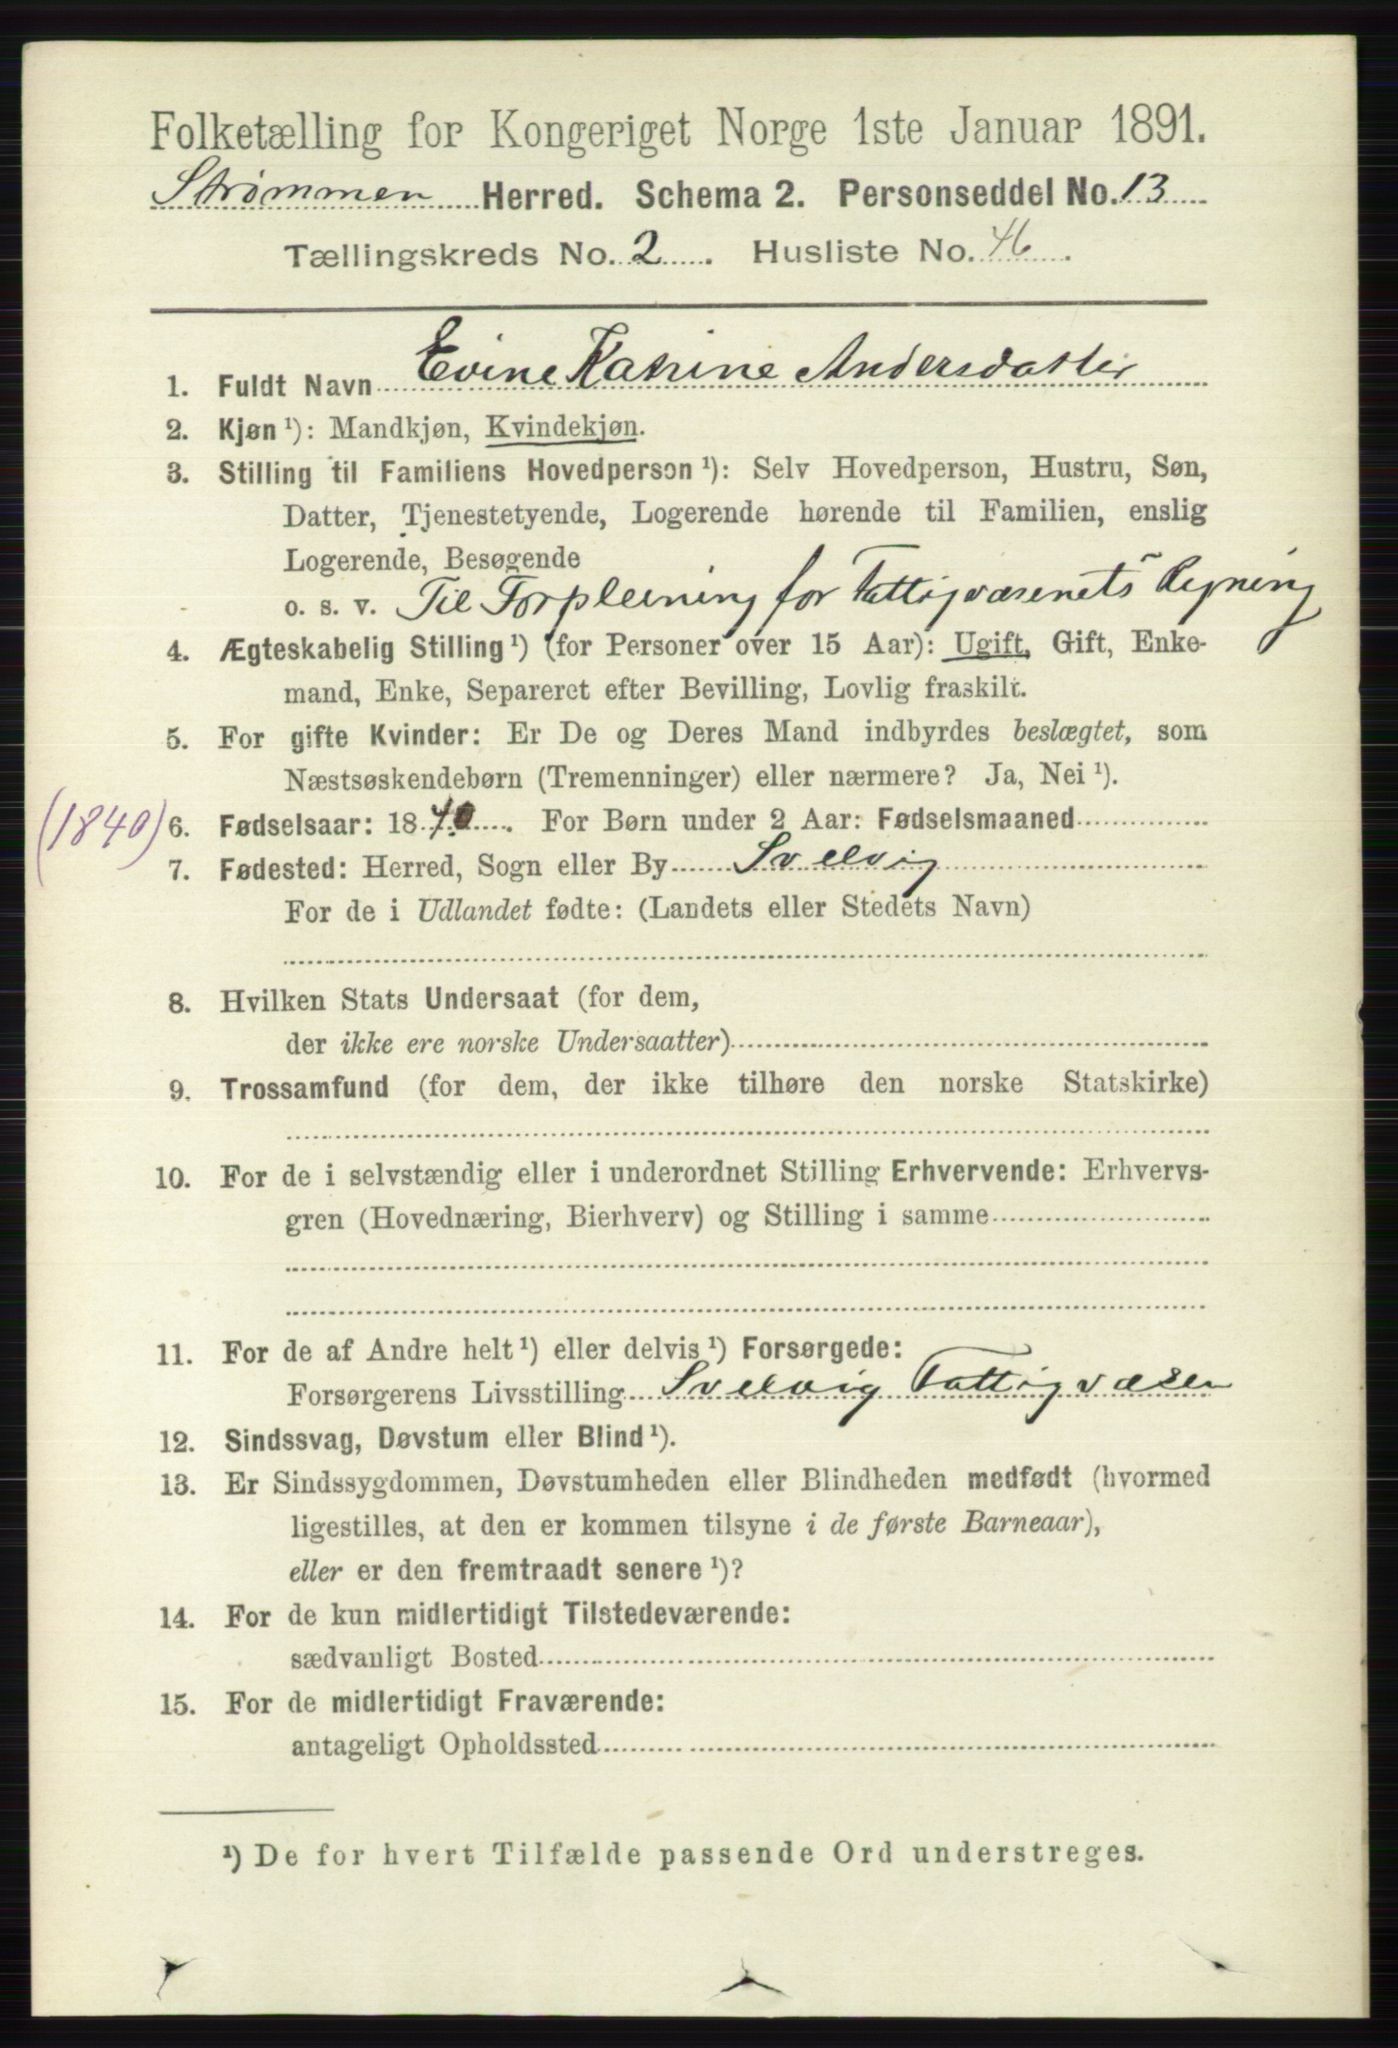 Folketælling for Kongeriget Norge 1ste Januar 1891.
Strømmen Herred. Schema 2. Personseddel No. 13
Tællingskreds No. 2. Husliste No. 46.
1. Fuldt Navn Evine Katrine Andersdatter
2. Kjøn ¹): Mandkjøn, Kvindekjøn.
3. Stilling til Familiens Hovedperson ¹): Selv Hovedperson, Hustru, Søn,
Datter, Tjenestetyende, Logerende hørende til Familien, enslig
Logerende, Besøgende
o. s. v. Til Forpleining for Fattigvæsenets Regning
4. Ægteskabelig Stilling ¹) (for Personer over 15 Aar): Ugift, Gift, Enke-
mand, Enke, Separeret efter Bevilling, Lovlig fraskilt.
5. For gifte Kvinder: Er De og Deres Mand indbyrdes beslægtet, som
Næstsøskendebørn (Tremenninger) eller nærmere? Ja, Nei ¹).
(1840) 6. Fødselsaar: 1840. For Børn under 2 Aar: Fødselsmaaned
7. Fødested: Herred, Sogn eller By Svelvig
For de i Udlandet fødte: (Landets eller Stedets Navn)
8. Hvilken Stats Undersaat (for dem,
der ikke ere norske Undersaatter)
9. Trossamfund (for dem, der ikke tilhøre den norske Statskirke)
10. For de i selvstændig eller i underordnet Stilling Erhvervende: Erhvervs-
gren (Hovednæring, Bierhverv) og Stilling i samme
11. For de af Andre helt ¹) eller delvis ¹) Forsørgede:
Forsørgerens Livsstilling Svelvig Fattigvæsen
12. Sindssvag, Døvstum eller Blind ¹).
13. Er Sindssygdommen, Døvstumheden eller Blindheden medfødt (hvormed
ligestilles, at den er kommen tilsyne i de første Barneaar),
eller er den fremtraadt senere ¹)?
14. For de kun midlertidigt Tilstedeværende:
sædvanligt Bosted
15. For de midlertidigt Fraværende:
antageligt Opholdssted
¹) De for hvert Tilfælde passende Ord understreges.